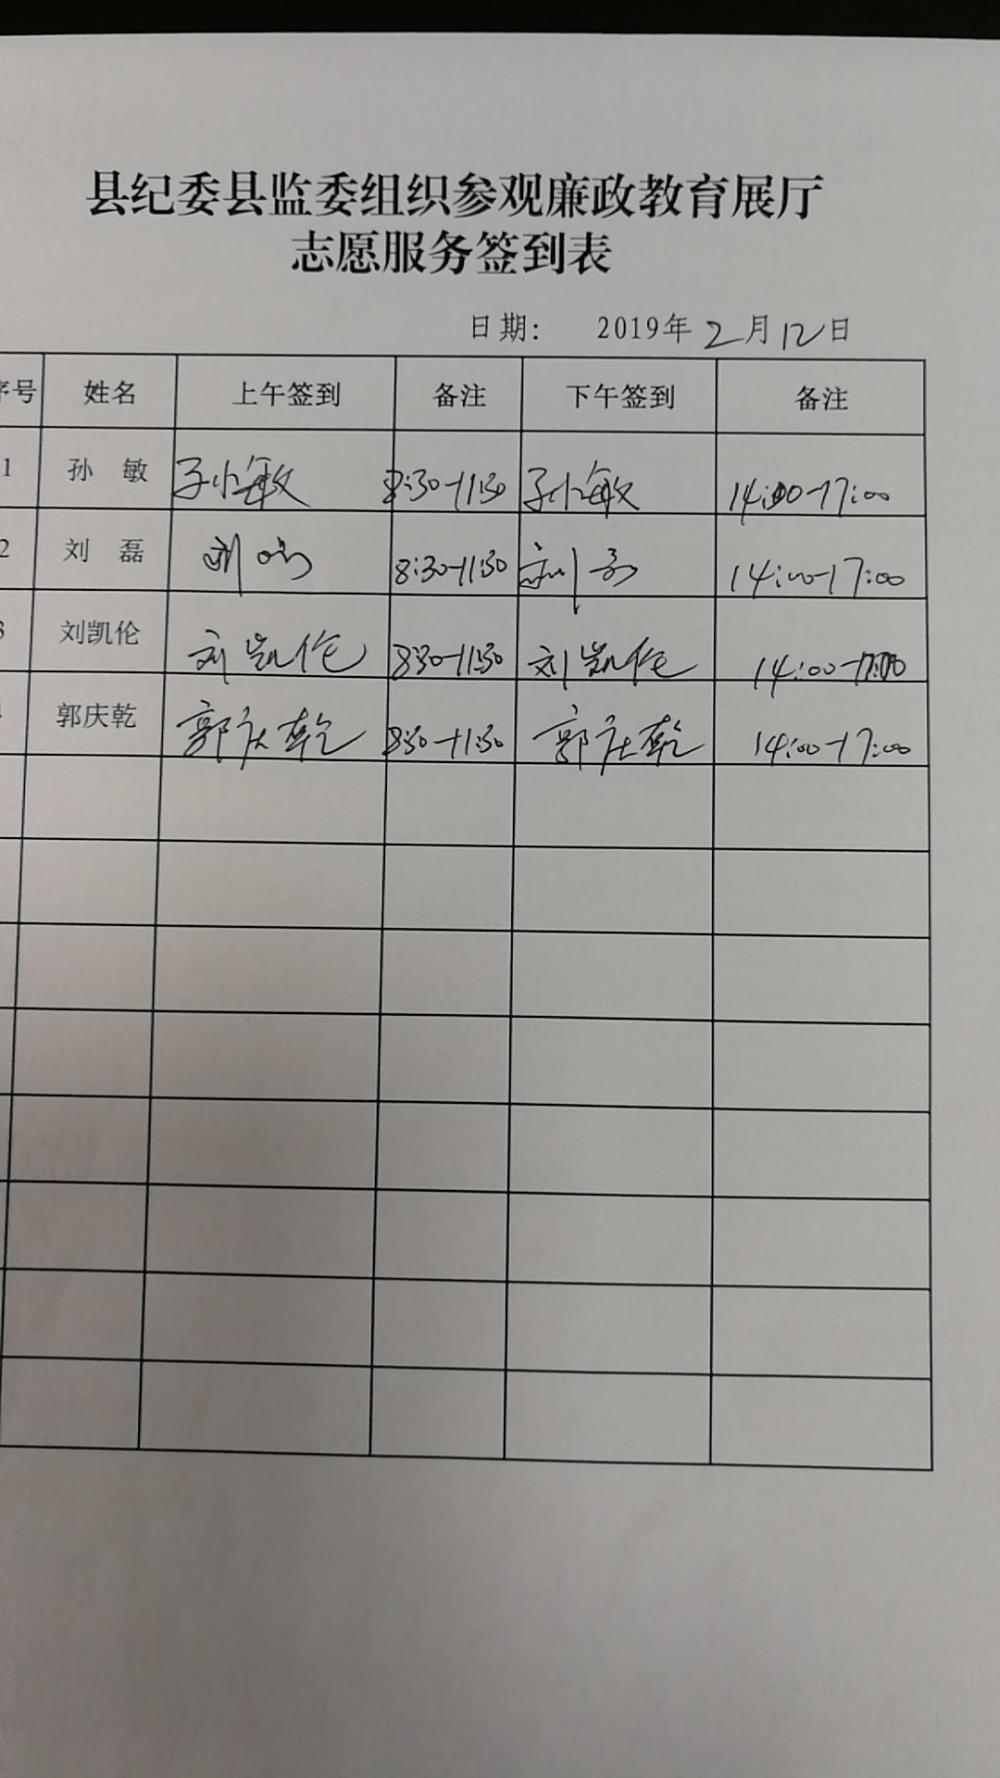 县纪委县监委组织参观廉政教育展厅
志愿服务签到表
日期： 2019年2月12日
序号 姓名 上午签到 备注 下午签到 备注
1 孙 敏 孙敏 8:30-11:30 孙敏 14:00-17:00
2 刘 磊 刘磊 8:30-11:30 刘磊 14:00-17:00
3 刘凯伦 刘凯伦 8:30-11:30 刘凯伦 14:00-17:00
郭庆乾 郭庆乾 8:30-11:30 郭庆乾 14:00-17:00